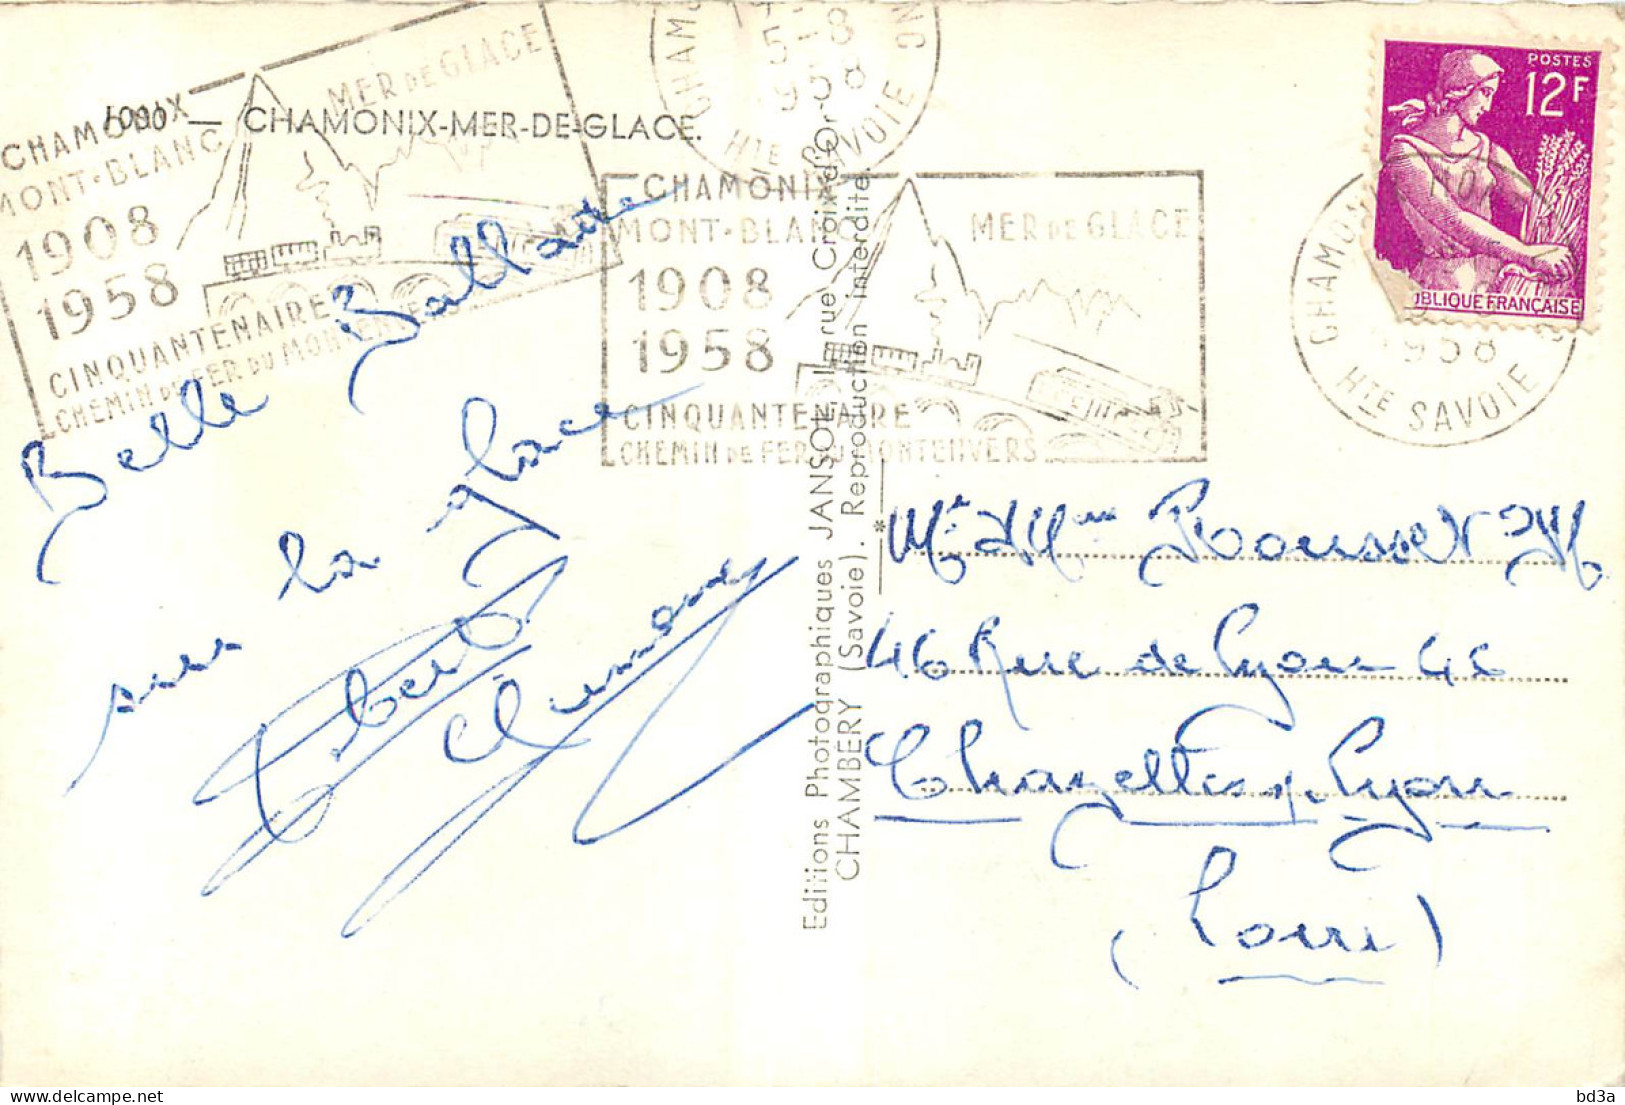 CHAMONIX
MONT-BLANC
1908
1958
MER DE GLACE
CINQUANTENAIRE
CHEMIN DE FER DU MONTENVERS
CHAMONIX-MER-DE-GLACE.
5-8
1958
HTE SAVOIE
CHAMONIX
MONT-BLANC
1908
1958
MER DE GLACE
CINQUANTENAIRE
CHEMIN DE FER DU MONTENVERS
POSTES
12F
UBLIQUE FRANÇAISE
1958
HTE SAVOIE
Belle Ballade
sur la glace
Editions Photographiques JANSOL, 1, rue Croix-d'Or -
CHAMBÉRY (Savoie). Reproduction interdite.
Mr et Mme Rousset
46 Rue de Lyon 46
Chazelles s. Lyon
(Loire)
bd3a